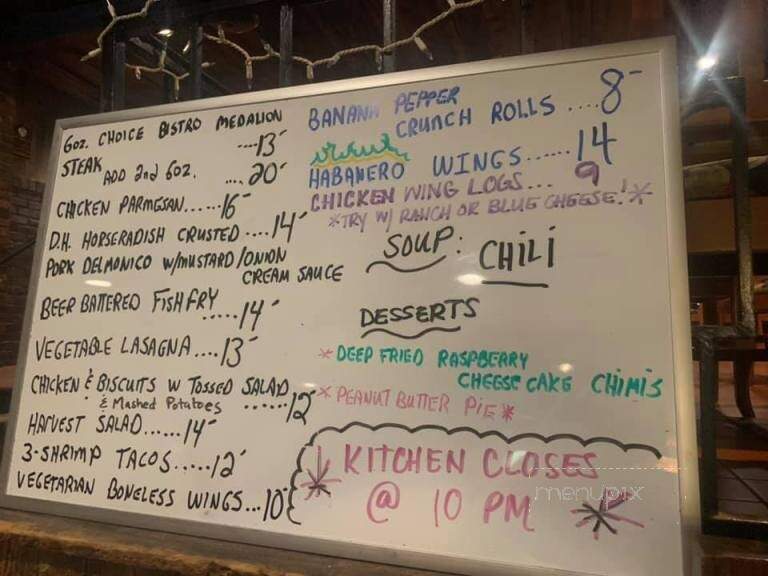 6oz. CHOICE BISTRO MEDALION
STEAK ----13-
ADD 2nd 6oz. .... 20-
CHICKEN PARMESAN......16-
D.H. HORSERADISH CRUSTED ....14-
PORK DELMONICO W/MUSTARD/ONION
CREAM SAUCE
BEER BATTERED FISH FRY
.....14-
VEGETABLE LASAGNA....13-
CHICKEN & BISCUITS W TOSSED SALAD
& MASHED POTATOES ......12
HARVEST SALAD......14-
3-SHRIMP TACOS.....12-
VEGETARIAN BONELESS WINGS...10-
BANANA PEPPER
CRUNCH ROLLS ....8-
HABANERO WINGS......14
CHICKEN WING LOGS... 9
*TRY W/ RANCH OR BLUE CHEESE!*
SOUP: CHILI
DESSERTS
* DEEP FRIED RASPBERRY
CHEESE CAKE CHIMIS
* PEANUT BUTTER PIE *
* KITCHEN CLOSES
@ 10 PM *
menupix